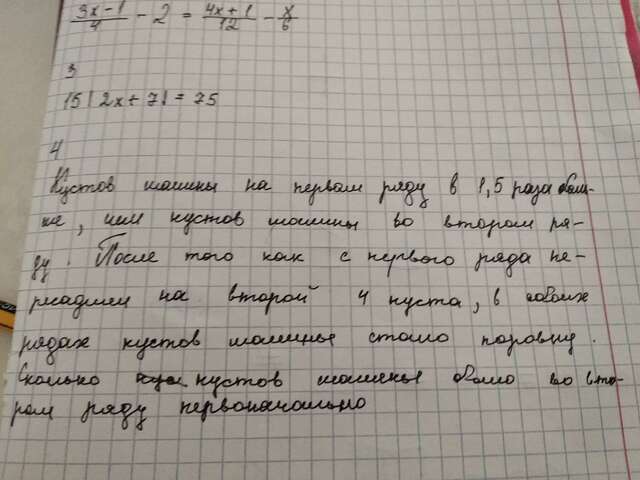 3x-1/4 - 2 = 4x+1/12 - x/6
3
15|2x+7|=75
4
Кустов малины на первом ряду в 1,5 раза боль-
ше, чем кустов малины во втором ря-
ду. После того как с первого ряда пе-
ресадили на второй 4 куста, в обоих
рядах кустов малины стало поровну.
Сколько кустов малины было во вто-
ром ряду первоначально